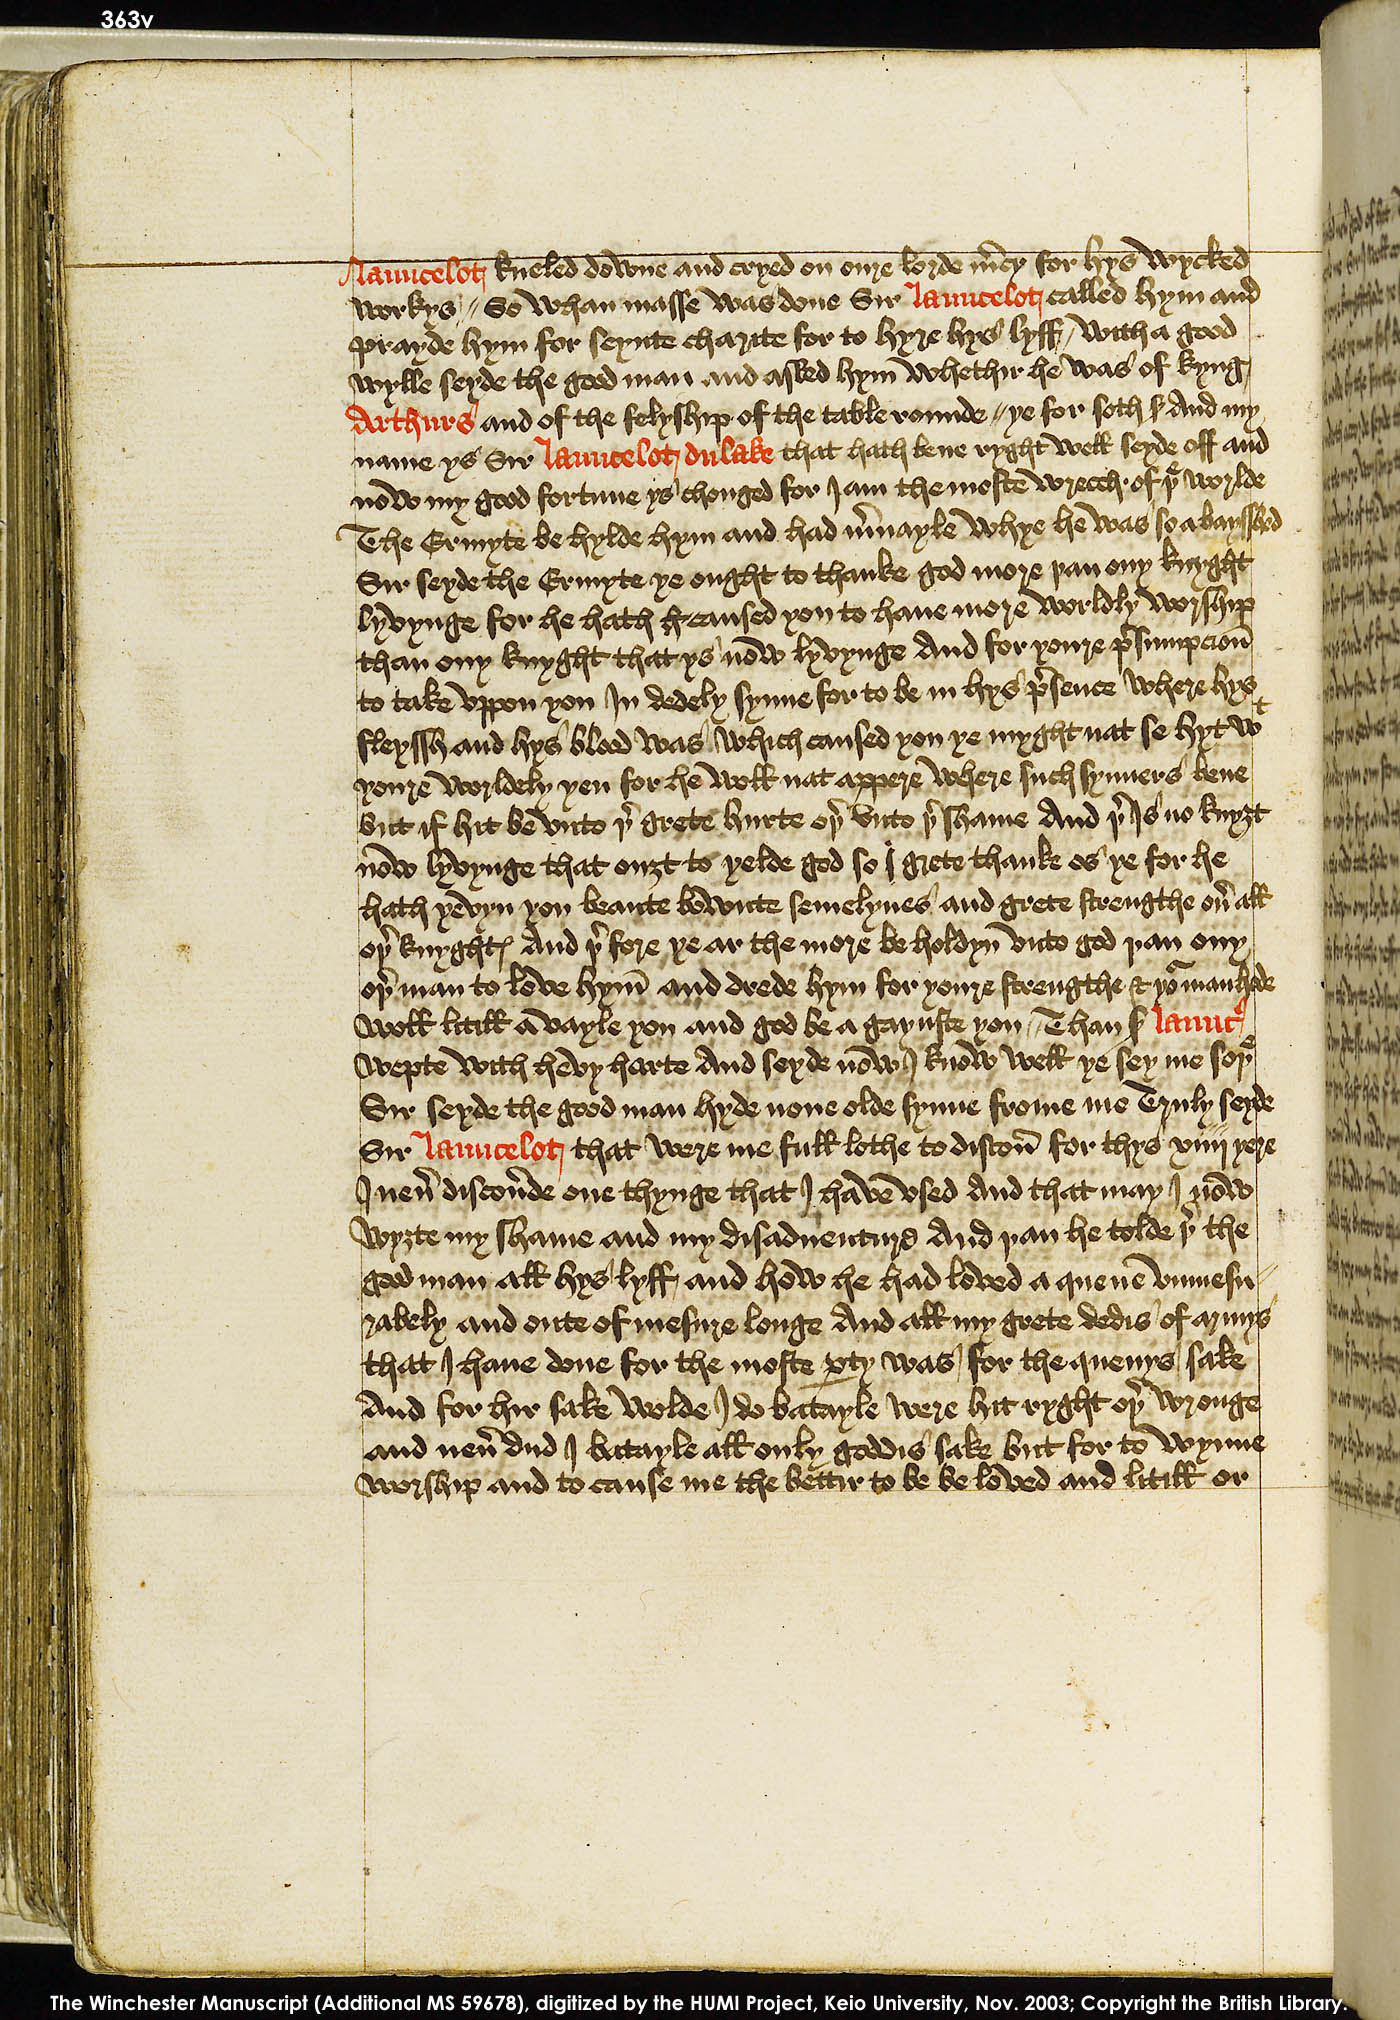 363v
Launcelot kneled downe and cryed on oure lorde m̄cy for hys wycked
workys // So whan masse was done Sir Launcelot called hym and
prayde hym for seynte charite for to hyre hys lyff / with a good
wylle seyde the good man and asked hym whethir he was of kyng
Arthurs and of the felyship of the table rounde // ye for soth ẜ And my
name ys Sir Launcelot du lake that hath bene ryght well seyde off and
now my good fortune ys chonged for I am the moste wrecch of þͤ worlde
The Ermyte be hylde hym and had m̄vayle whye he was so abaysshed
Sir seyde the Ermyte ye ought to thanke god more þan ony knyght
lyvynge for he hath caused you to haue more worldly worship
than ony knyght that ys now lyvynge And for youre p̄sumpcion
to take vppon you In dedely synne for to be in hys p̄sence where hys
fleyssh and hys blood was which caused you ye myght nat se hyt wͭ
youre worldely yen for he woll nat appere where such synners bene
but if hit be vnto þ̄ grete hurte oþ̄ vnto þ̄ shame And þ̄ Is no knyȝt
now lyvynge that ouȝt to yelde god so grete thanke os ye for he
hath yevyn you beaute bownte semelynes and grete strengthe ov̄ all
oþ̄ knyghtꝭ And þ̄ fore ye ar the more be holdyn vnto god þan ony
oþ̄ man to love hym and drede hym for youre strengthe & yoͬ manhode
woll litill a vayle you and god be a gaynste you // Than ẜ Launcͭ
wepte with hevy harte And seyde now I know well ye sey me soþͤ
Sir seyde the good man hyde none olde synne frome me Truly seyde
Sir Launcelot that were me full lothe to discou̅ for thys xiiij yere
I neu̅ discou̅de one thynge that I have vsed And that may I now
wyȝte my shame and my disadventure And þan he tolde þ̄ the
good man all hys lyff / and how he had loved a quene vnmesu //
rabely and oute of mesure longe And all my grete dedis of armys
that I haue done for the moste ꝑty was for the quenys sake
And for hir sake wolde I do batayle were hit ryght oþ̄ wronge
and neu̅ dud I batayle all only goddis sake but for to wynne
worship and to cause me the bettir to be be loved and litill or
The Winchester Manuscript (Additional MS 59678), digitized by the HUMI Project, Keio University, Nov. 2003; Copyright the British Library.